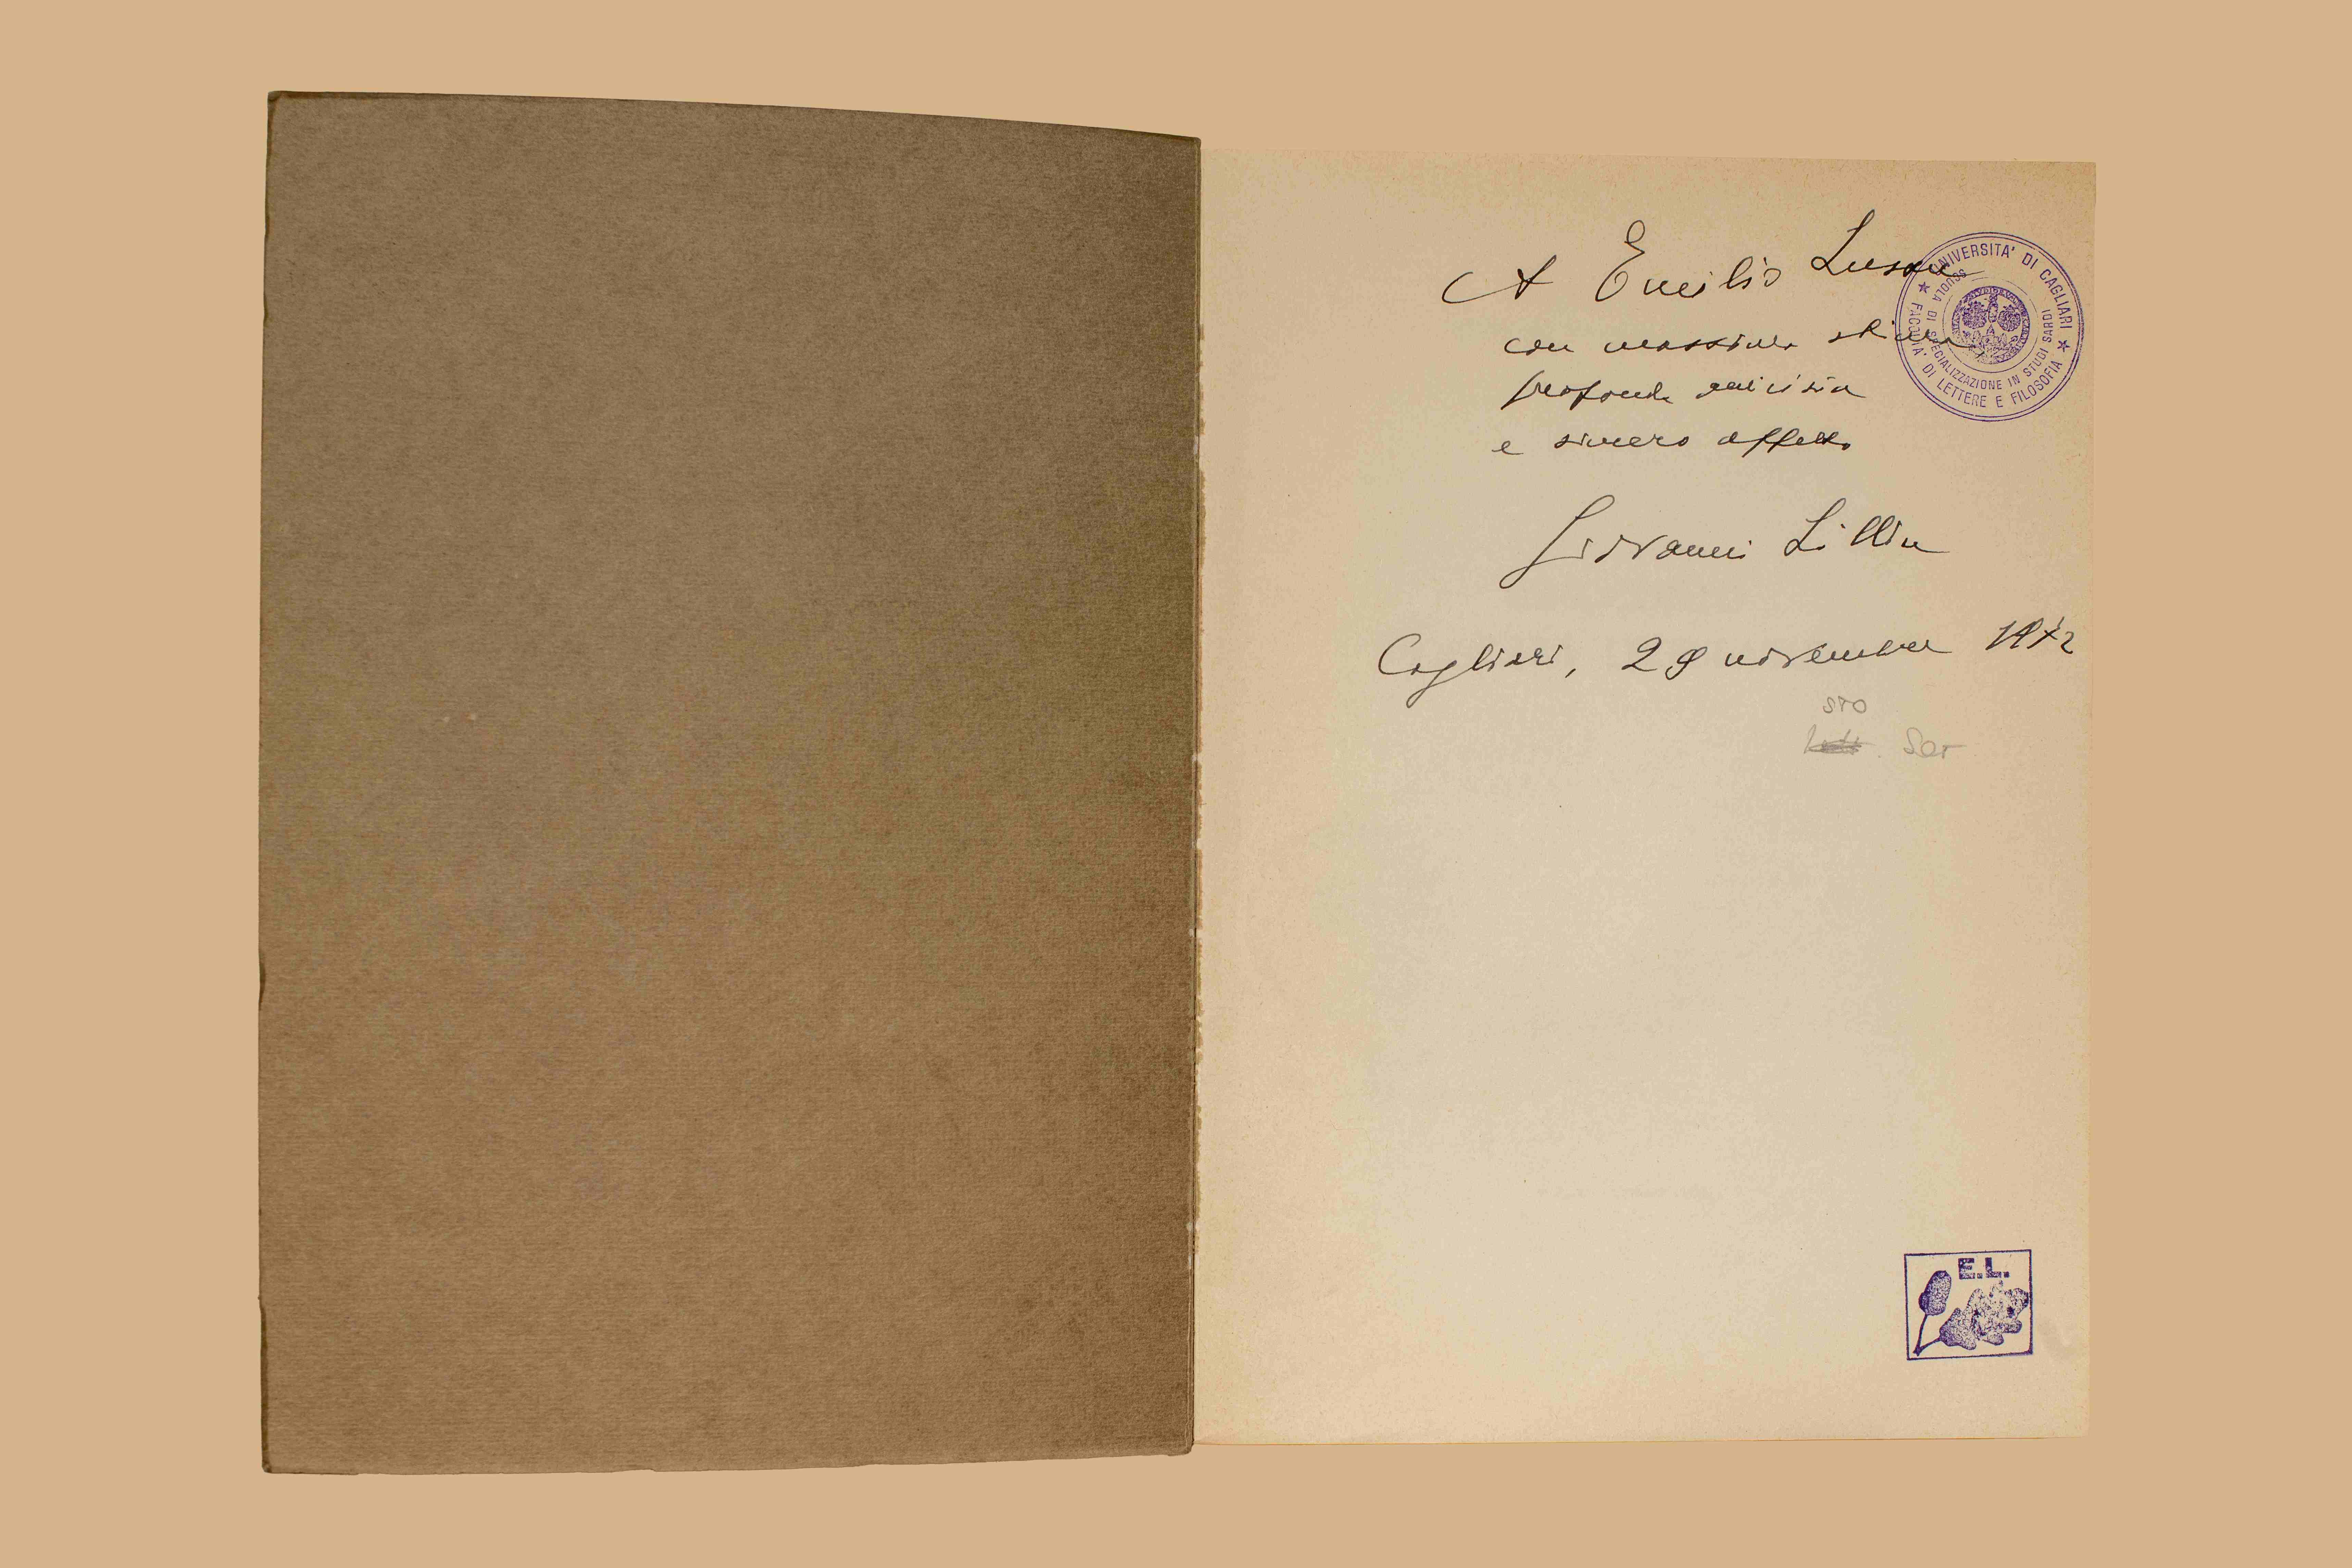 A Emilio Lussu
con massima stima,
profonda amicizia
e sincero affetto
Giovanni Lilliu
Cagliari, 29 novembre 1972
STO
Sar
★ UNIVERSITA' DI CAGLIARI ★ FACOLTA' DI LETTERE E FILOSOFIA
SCUOLA DI SPECIALIZZAZIONE IN STUDI SARDI
E.L.